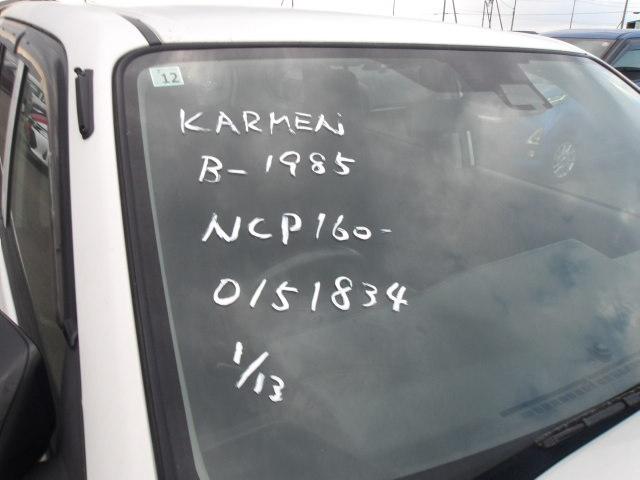 12
KARMEN
B-1985
NCP160-
0151834
1/13